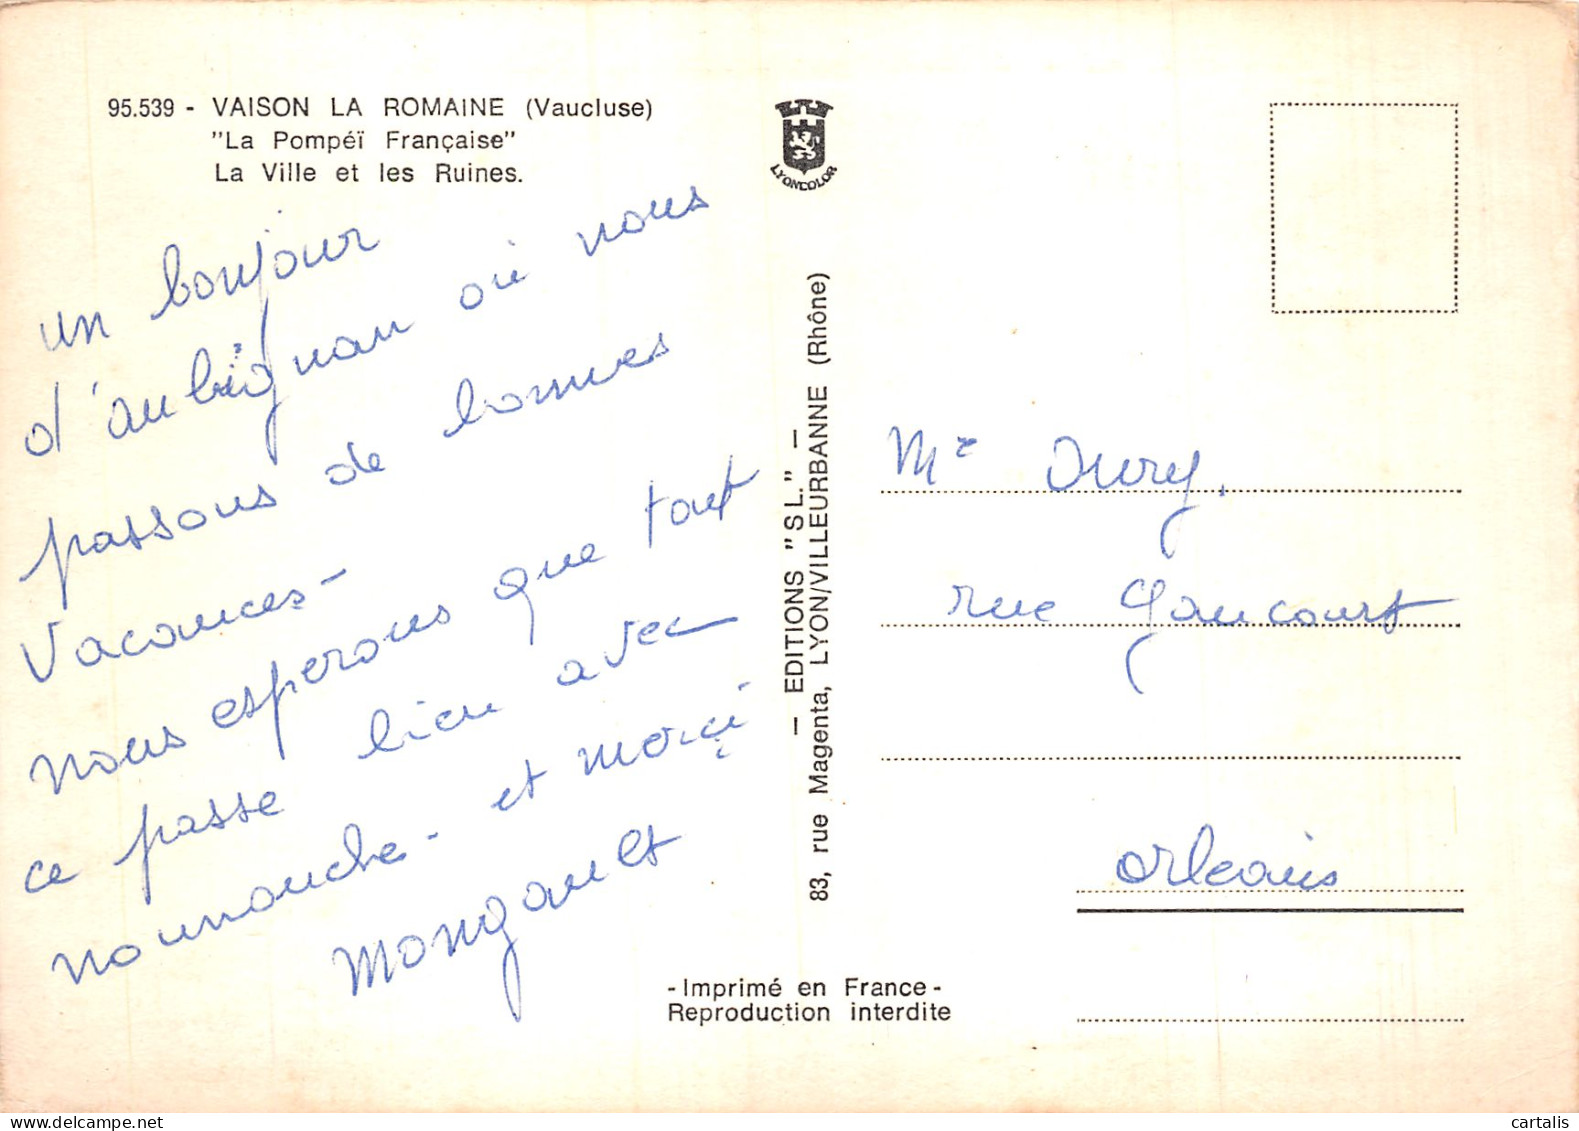 95.539 - VAISON LA ROMAINE (Vaucluse)
"La Pompéï Française"
La Ville et les Ruines.
un bonjour
d'aubignan où nous
passons de bonnes
Vacances -
nous esperons que tout
ce passe bien avec
- et merçi
Mongault
LYONCOLOR
— EDITIONS "SL." —
83, rue Magenta, LYON/VILLEURBANNE (Rhône)
- Imprimé en France -
Reproduction interdite
Mr
rue
orleans
delcampe.net
cartalis